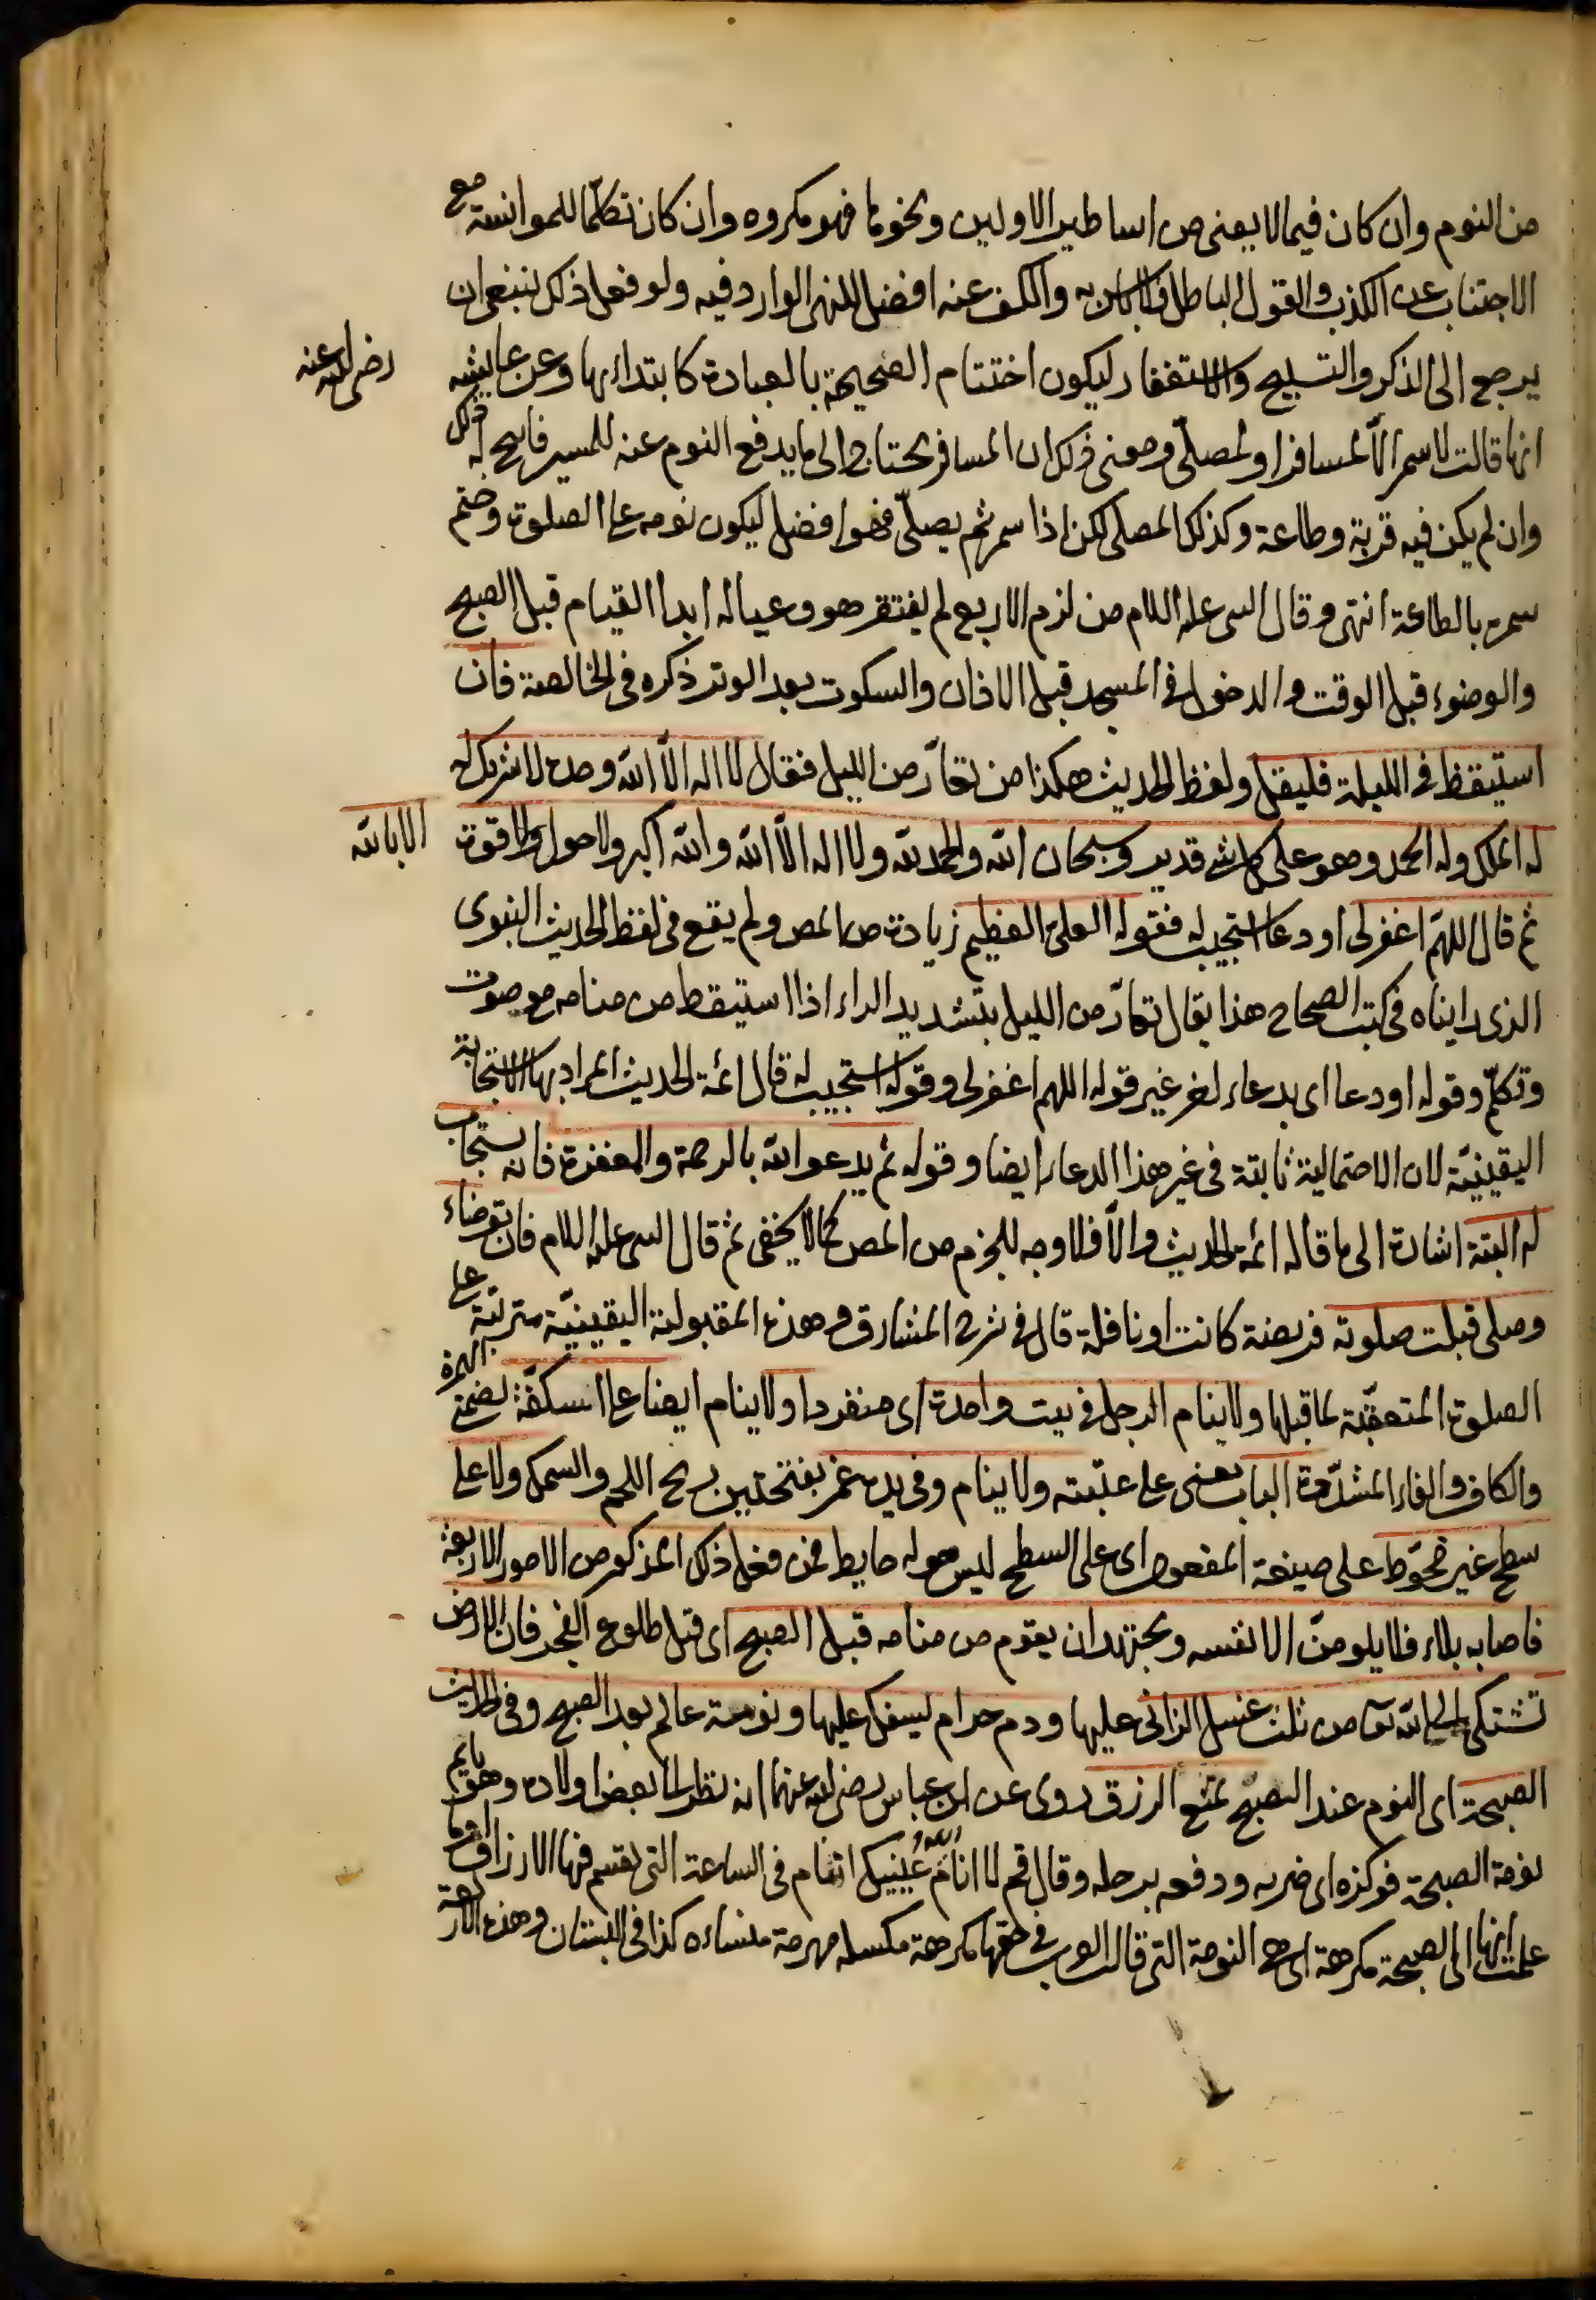 من النوم وان كان فيما لا يعنى من اساطير الاولين ونحوها فهو مكروه وان كان تكلما للموانسة مع
الاجتناب عن الكذب والقول الباطل فلا باس به والكف عنه افضل للنهى الوارد فيه ولو فعل ذلك ينبغى ان
يرجع الى الذكر والتسبيح والاستغفار ليكون اختتام الصحيحة بالعبادة كابتداءها وعن عايشه رضى الله عنه
انها قالت لا سمر الّا لمسافر او لمصلّى ومعنى ذلك ان المسافر يحتاج الى ما يدفع النوم عنه للمسير فابيح له ذلك
وان لم يكن فيه قربة وطاعة وكذلك المصلى لكن اذا سمر ثم يصلّى فهو افضل ليكون نومه على الصلوة وختم
سمره بالطاعة انتهى وقال النبى عليه السلام من لزم الاربع لم يفتقر هو وعياله ابدا القيام قبل الصبح
والوضوء قبل الوقت والدخول فى المسجد قبل الاذان والسكوت بعد الوتر ذكره فى الخالصة فان
استيقظ فى الليلة فليقل ولفظ الحديث هكذا من تعارّ من الليل فقال لا اله الّا الله وحده لا شريك له
له الملك وله الحمد وهو على كل شئ قدير وسبحان الله والحمد لله ولا اله الّا الله والله اكبر ولا حول ولا قوة الا بالله
ثم قال اللهم اغفر لى او دعا استجيب له فقوله العلى العظيم زيادة من المص ولم يقع فى لفظ الحديث النبوى
الذى رايناه فى كتب الصحاح هذا يقال تعارّ من الليل بتشديد الراء اذا استيقظ من منامه مع صوت
وتكلّم وقوله او دعا اى بدعاء اخر غير قوله اللهم اغفر لى وقوله استجيب له قال ائمة الحديث المراد بها الاستجابة
اليقينيّة لان الاحتمالية ثابتة فى غير هذا الدعاء ايضا وقوله ثم يدعو الله بالرحمة والمغفرة فانه يستجاب
له البتة اشارة الى ما قاله ائمة الحديث والّا فلا وجه للجزم من المص كما لا يخفى ثم قال النبى عليه السلام فان توضاء
وصلى قبلت صلوته فريضة كانت او نافلة قال فى شرح المشارق وهذه المقبولية اليقينيّة مترتّبة على
الصلوة المتعقّبة لما قبلها ولا ينام الرجل فى بيت واحدة اى منفردا ولا ينام ايضا على اسكفّة بضمّ الهمزة
والكاف والفاء المشدّدة الباب يعنى على عتبته ولا ينام وفى يده غمر بفتحتين ريح اللحم والسمك ولا على
سطح غير محوّط على صيغة المفعول اى على السطح ليس حوله حايط فمن فعل ذلك المذكور من الامور الاربعة
فاصابه بلاء فلا يلومنّ الا نفسه ويجتهد ان يقوم من منامه قبل الصبح اى قبل طلوع الفجر فان الارض
تشتكى الى الله تعا من ثلث غسل الزانى عليها ودم حرام يسفك عليها ونومة عالم بعد الصبح وفى الحديث
الصبحة اى النوم عند الصبح تمنع الرزق روى عن ابن عباس رضى الله عنهما انه نظر الى بعض اولاده وهو نايم
نومة الصبحة فوكزه اى ضربه ودفعه برجله وقال قم لا انام الله عينيك اتنام فى الساعة التى يقسم فيها الارزاق اوما
علمت انها اى الصبحة مكرهة اى هى النومة التى قالت العرب فى حقها مكرهة مكسلة مهرمة منساءه كذا فى البستان وهذه الاربعة